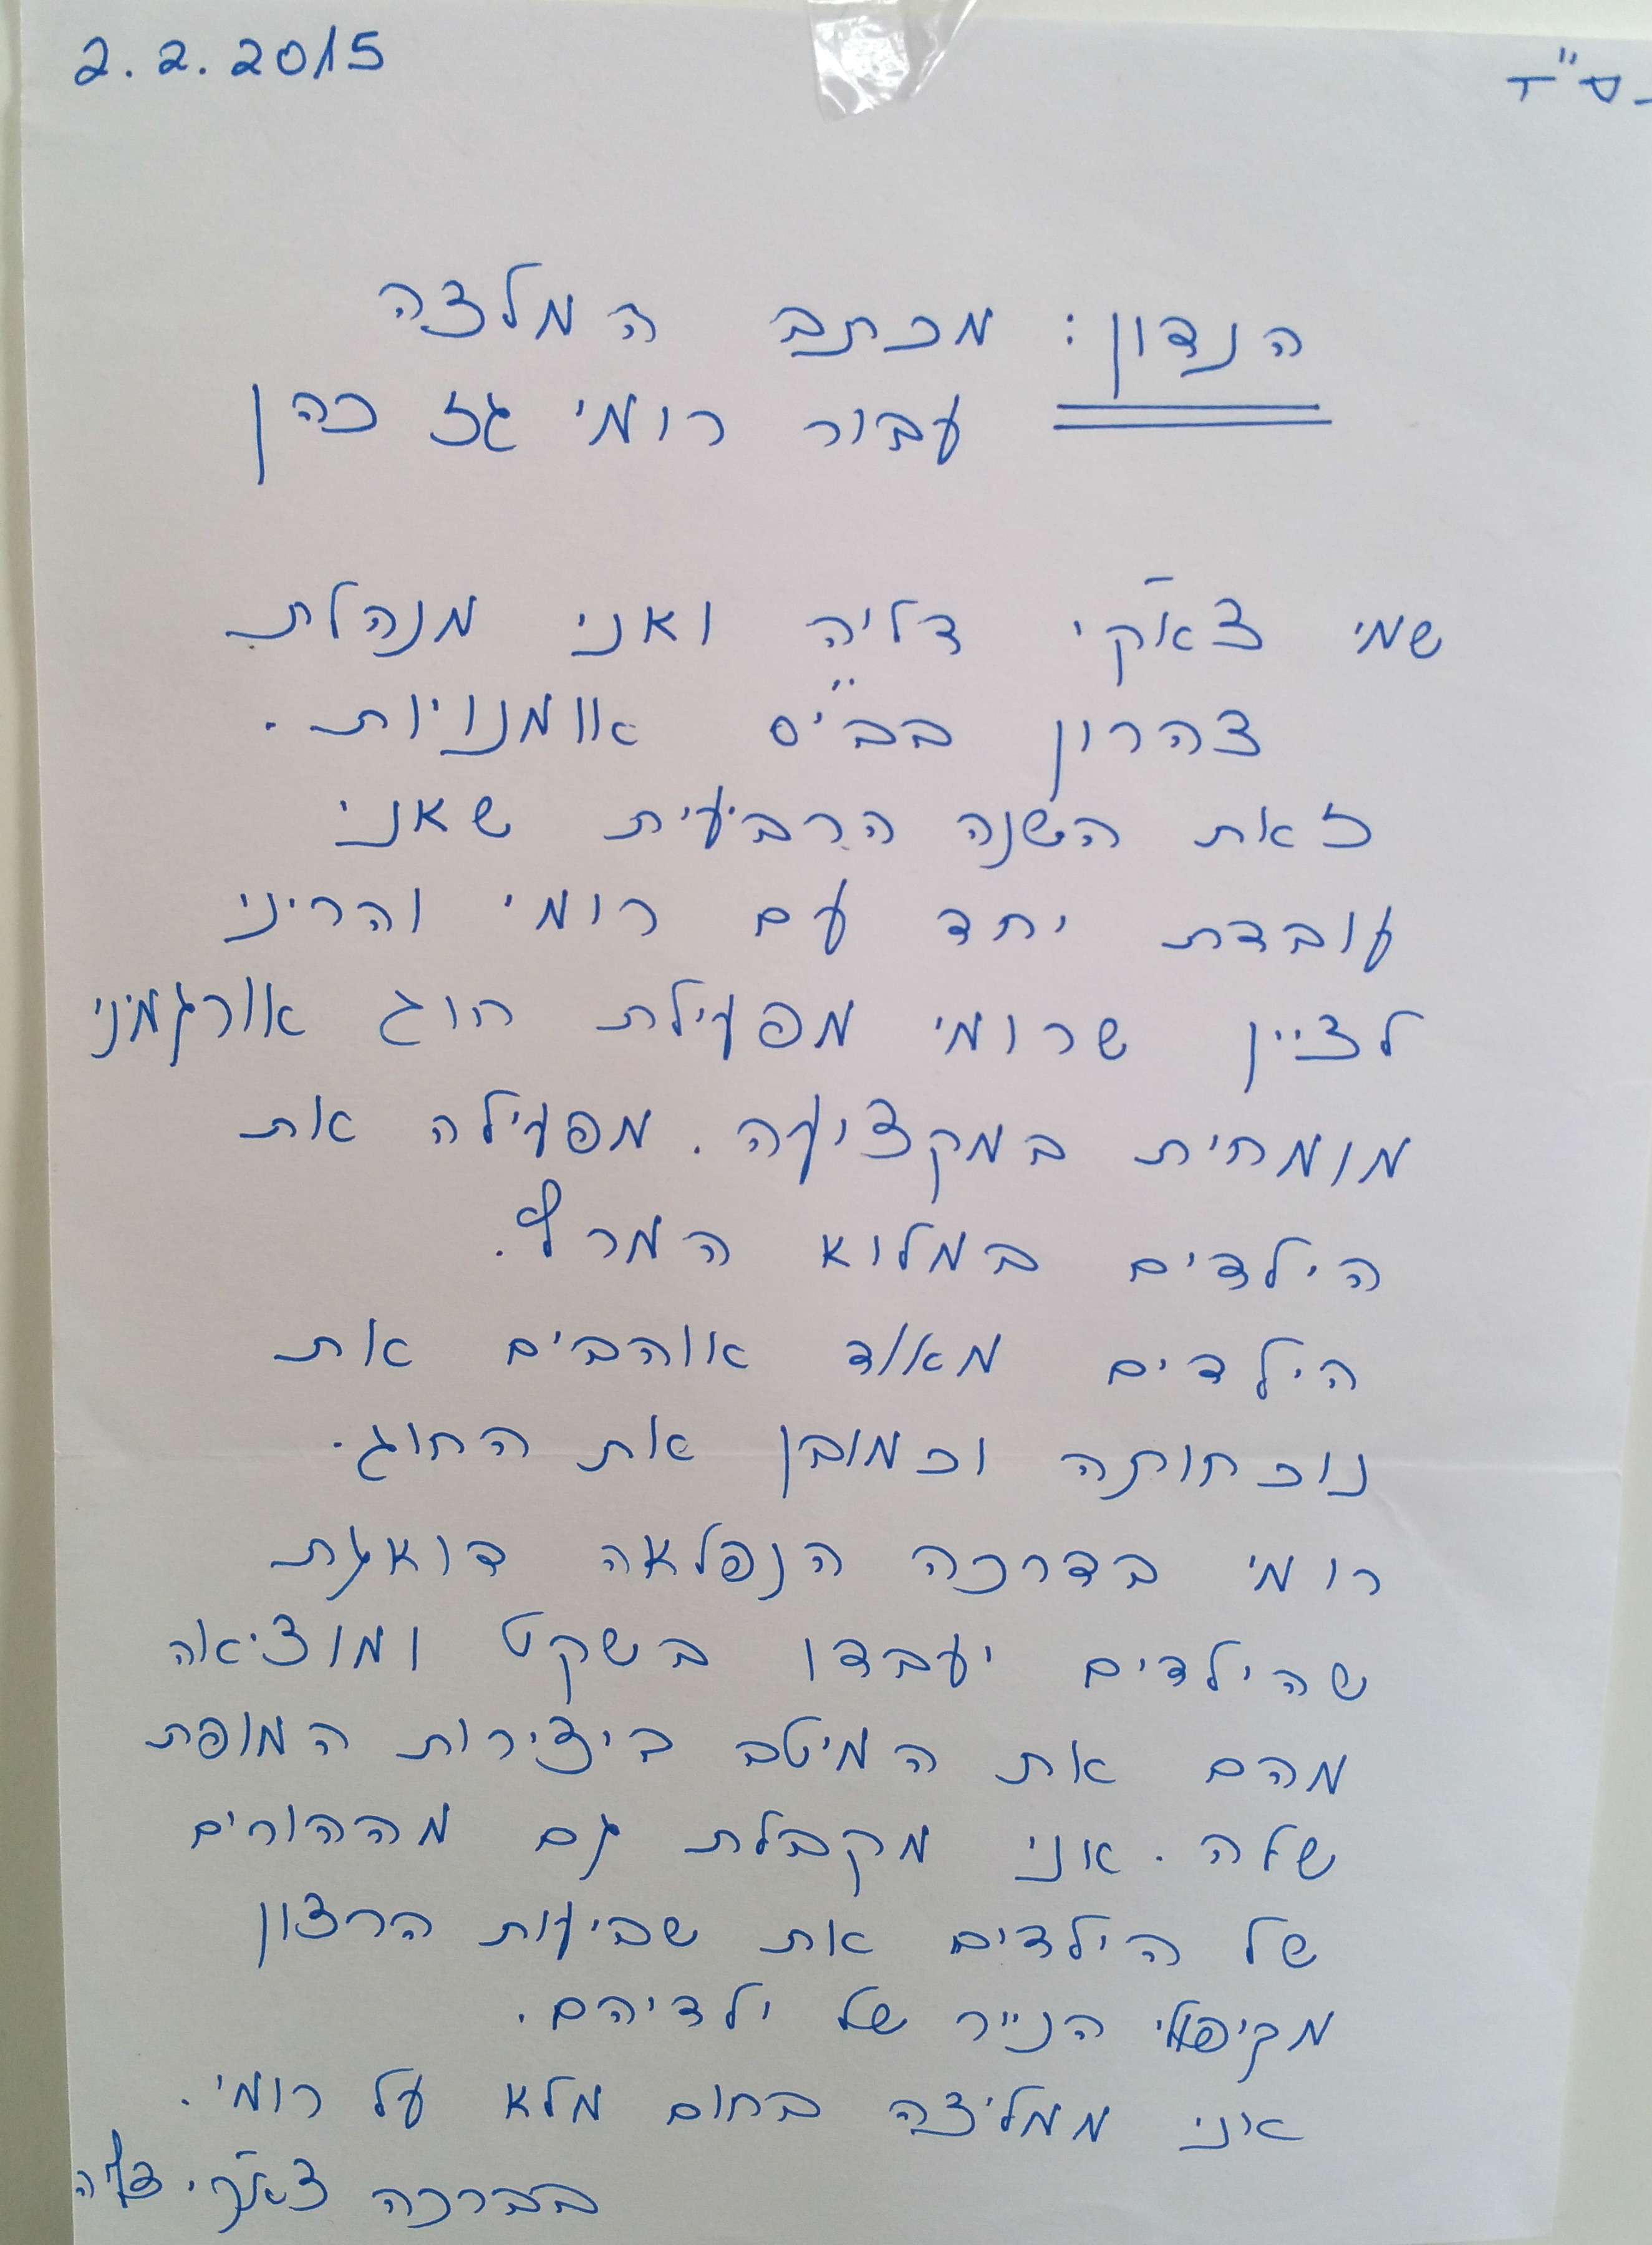 בס"ד 2.2.2015
הנדון: מכתב המלצה
עבור רומי גז כהן
שמי צאקי דליה ואני מנהלת
צהרון בבי"ס אומנויות.
זאת השנה הרביעית שאני
עובדת יחד עם רומי והריני
לציין שרומי מפעילת חוג אורגמיני
מומחית במקצועה. מפעילה את
הילדים במלוא המרץ.
הילדים מאוד אוהבים את
נוכחותה וכמובן את החוג.
רומי בדרכה הנפלאה דואגת
שהילדים יעבדו בשקט ומוציאה
מהם את המיטב ביצירות המופת
שלה. אני מקבלת גם מההורים
של הילדים את שביעות הרצון
מקיפולי הנייר של ילדיהם.
אני ממליצה בחום מלא על רומי.
בברכה צאקי דליה